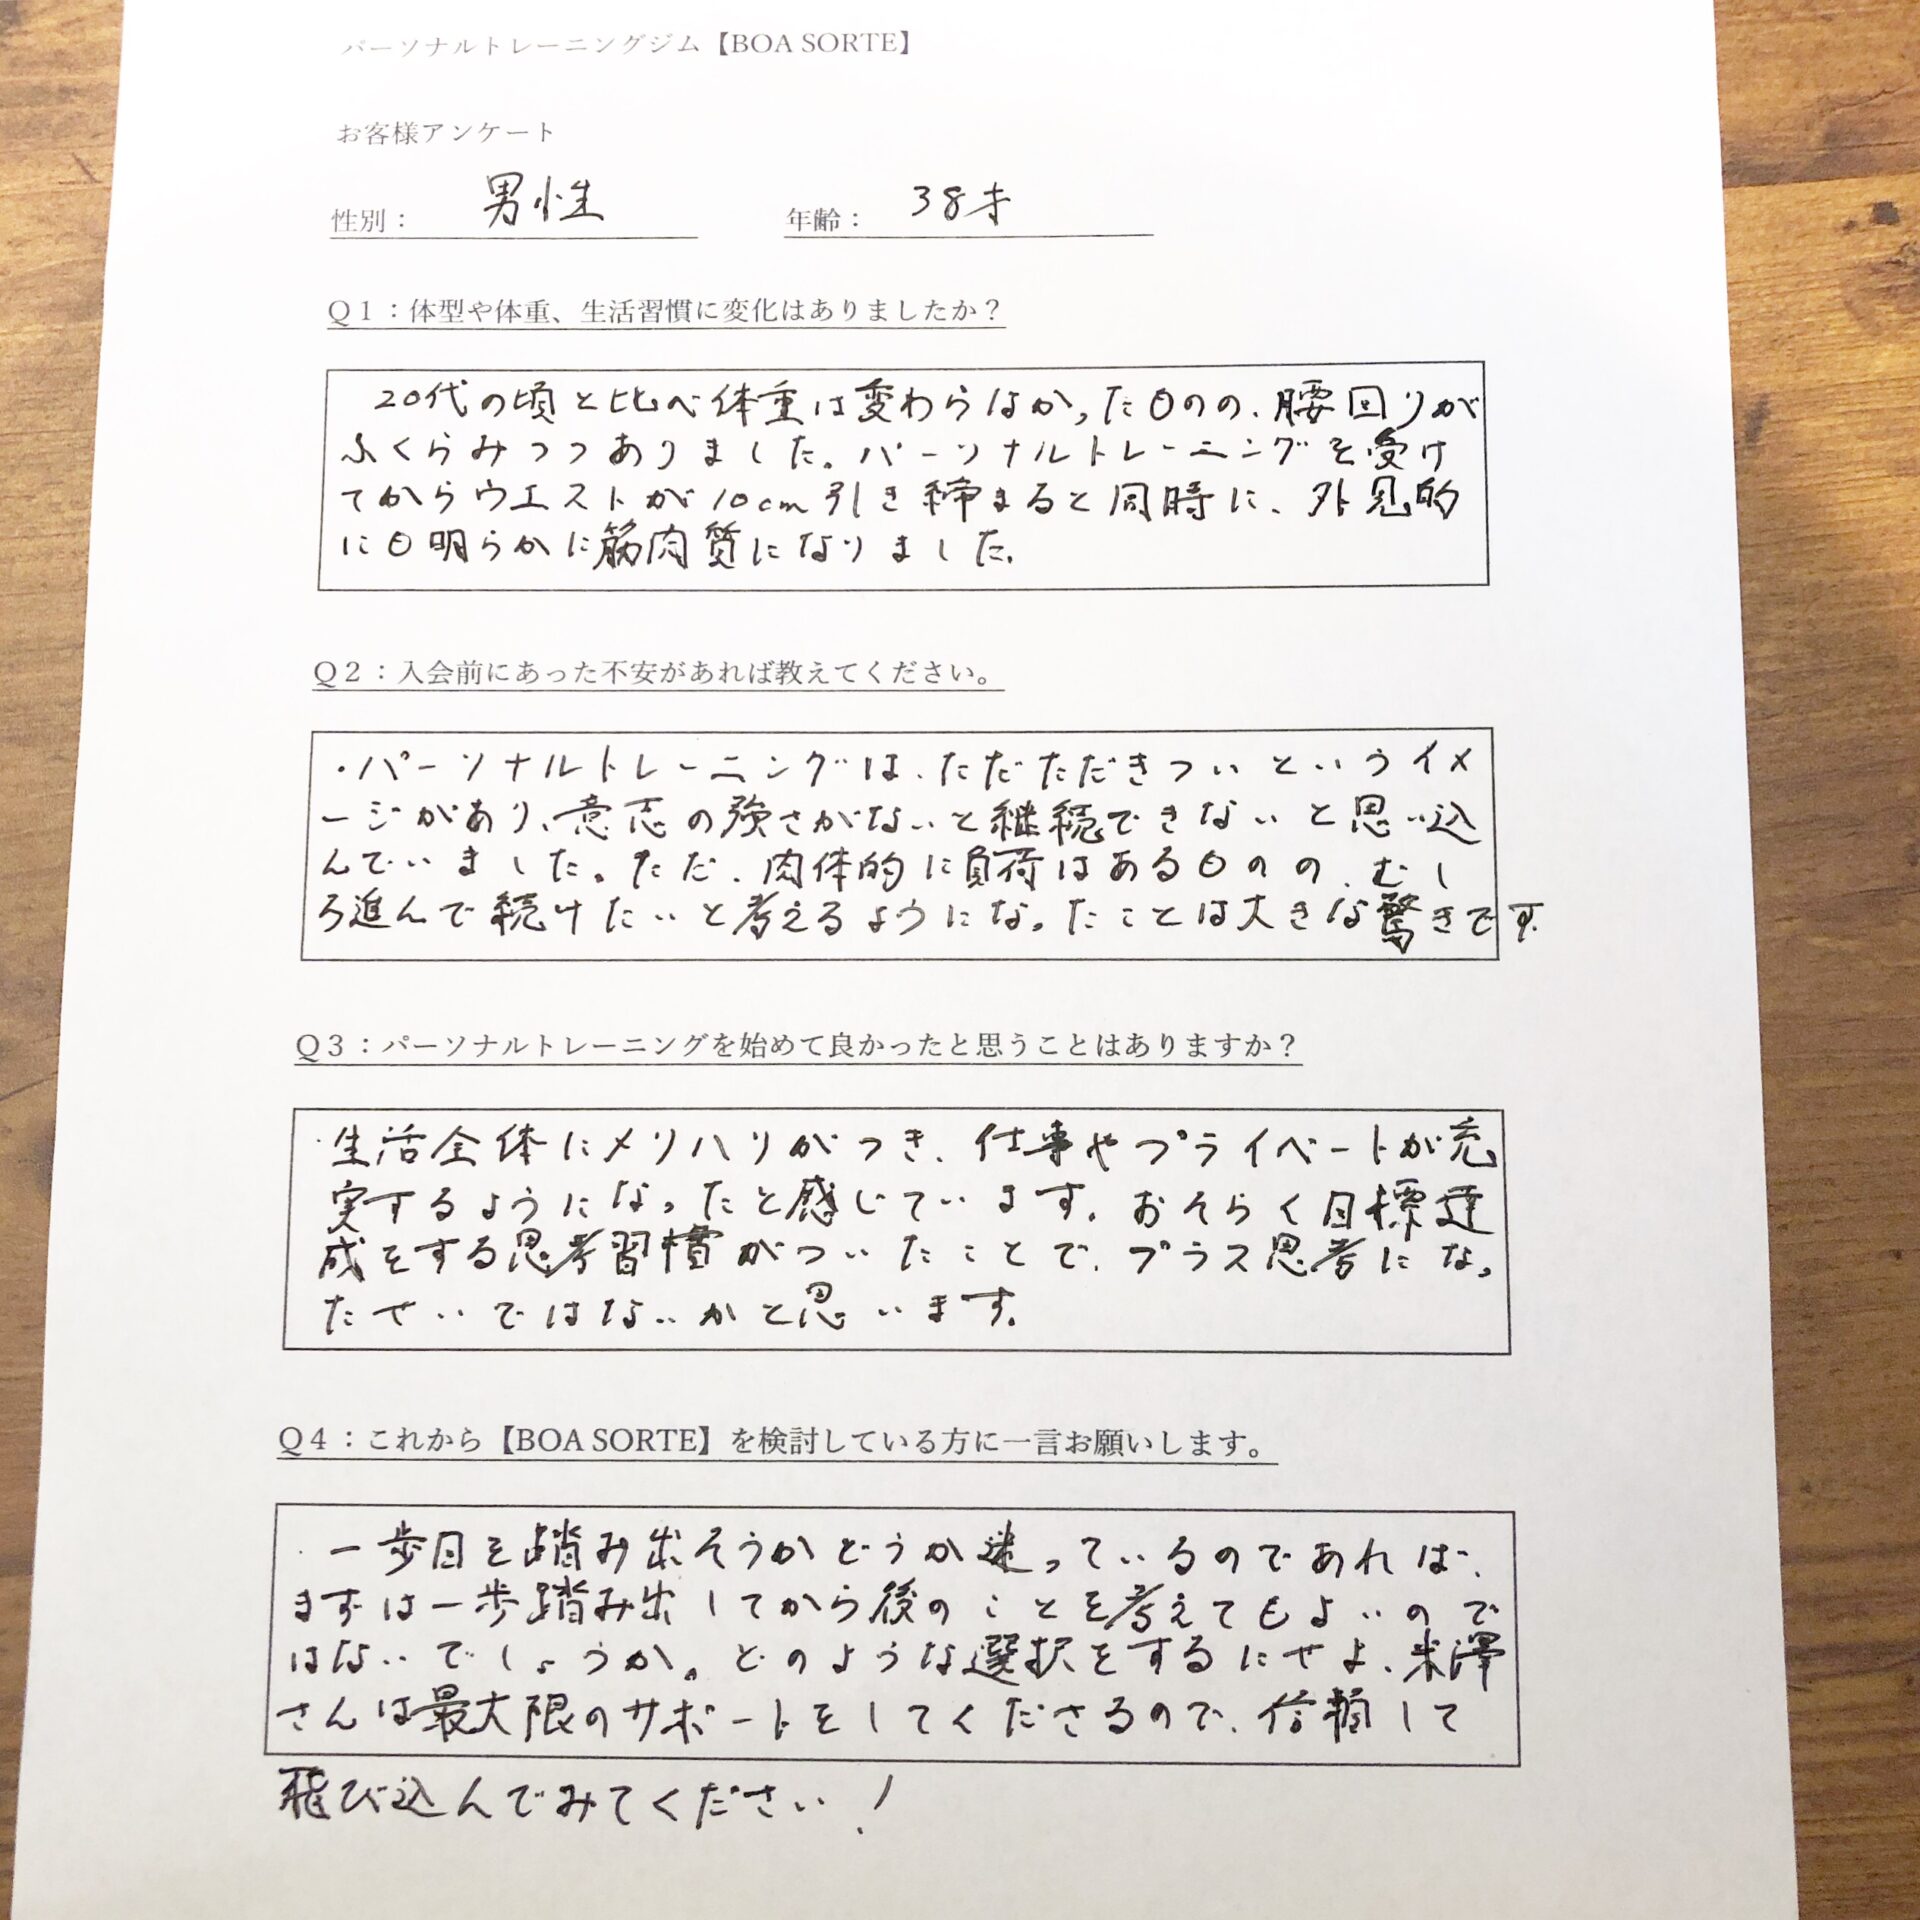 パーソナルトレーニングジム【BOA SORTE】
お客様アンケート
性別： 男性 年齢： 38才
Q1：体型や体重、生活習慣に変化はありましたか？
20代の頃と比べ体重は変わらなかったものの、腰回りが
ふくらみつつありました。パーソナルトレーニングを受け
てからウエストが10cm引き締まると同時に、外見的
にも明らかに筋肉質になりました。
Q2：入会前にあった不安があれば教えてください。
・パーソナルトレーニングは、ただただきついというイメ
ージがあり、意志の強さがないと継続できないと思い込
んでいました。ただ、肉体的に負荷はあるものの、むし
ろ進んで続けたいと考えるようになったことは大きな驚きです。
Q3：パーソナルトレーニングを始めて良かったと思うことはありますか？
・生活全体にメリハリがつき、仕事やプライベートが充
実するようになったと感じています。おそらく目標達
成をする思考習慣がついたことで、プラス思考になっ
たせいではないかと思います。
Q4：これから【BOA SORTE】を検討している方に一言お願いします。
・一歩目を踏み出そうかどうか迷っているのであれば、
まずは一歩踏み出してから後のことを考えてもよいので
はないでしょうか。どのような選択をするにせよ、米澤
さんは最大限のサポートをしてくださるので、信頼して
飛び込んでみてください！